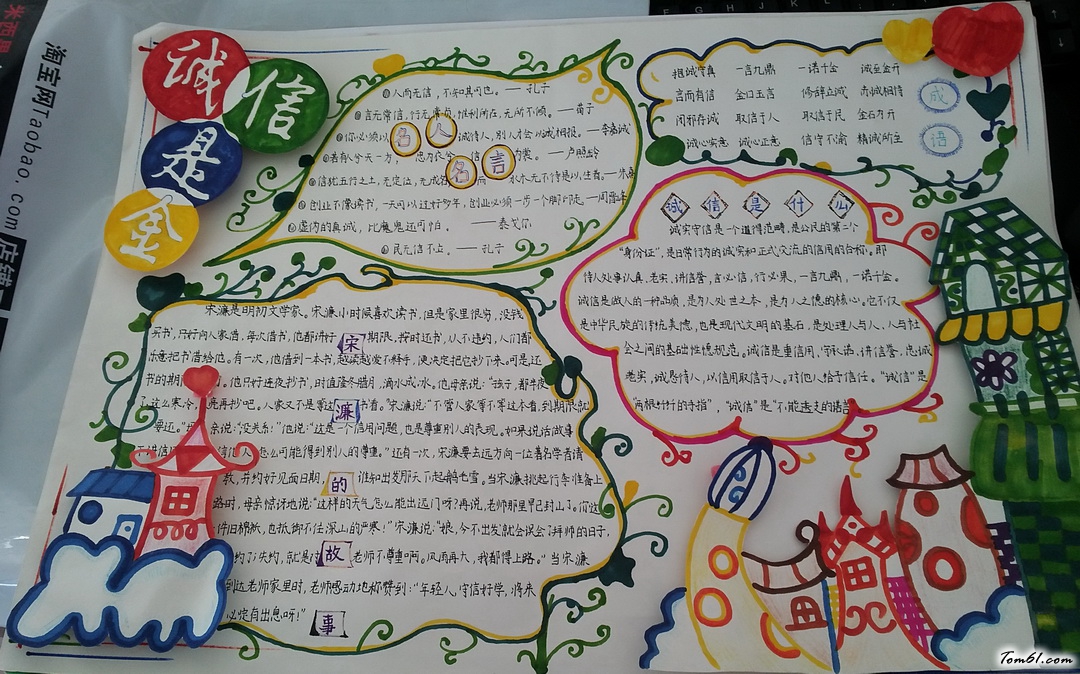 米西果
淘宝网Taobao.com
诚信是金
名人名言
①人而无信，不知其可也。——孔子
②言无常信，行无常贞，惟利所在，无所不倾。——荀子
③你必须以诚待人，别人才会以诚相报。——李嘉诚
④若有兮天一方，忠为衣兮信为裳。——卢照邻
⑤信犹五行之土，无定位，无成名，而水 木无不待是以生者。—朱熹
⑥创业不像读书，一天可以过好多年，创业必须一步一个脚印走
⑦虚伪的真诚，比魔鬼还可怕。——泰戈尔
⑧民无信不立。——孔子
抱诚守真 一言九鼎 一诺千金 诚至金开
言而有信 金口玉言 修辞立诚 赤诚相待
闭邪存诚 取信于人 取信于民 金石为开
诚心实意 诚心正意 信守不渝 精诚所至
成语
诚信是什么
诚实守信是一个道德范畴，是公民的第二个
“身份证”，是日常行为的诚实和正式交流的信用的合称。即
待人处事认真、老实、讲信誉，言必信，行必果，一言九鼎，一诺千金。
诚信是做人的一种品质，是为人处世之本，是为人之德的核心。它不仅
是中华民族的传统美德，也是现代文明的基石，是处理人与人、人与社
会之间的基础性德规范。诚信是重信用、守承诺、讲信誉、忠诚
老实、诚恳待人，以信用取信于人。对他人给予信任。“诚信”是
“两根纤纤的手指”，“诚信”是“不能透支的诺言
宋濂的故事
宋濂是明初文学家。宋濂小时候喜欢读书，但是家里很穷，没钱
买书，只好向人家借，每次借书，他都讲好期限，按时还书，从不违约，人们都
乐意把书借给他。有一次，他借到一本书，越读越爱不释手，便决定把它抄下来。可是还
书的期限 他只好连夜抄书，时值隆冬腊月，滴水成冰。他母亲说：“孩子，都半夜
了这么寒冷，亮再抄吧。人家又不是等这书看。”宋濂说：“不管人家等不等这本看，到期限就
要还。” 亲说：“没关系：”他说：“这是一个信用问题，也是尊重别人的表现。如果说话做事
怎么可能得到别人的尊重。”还有一次，宋濂要去远方向一位著名学者请
教，并约好见面日期，谁知出发那天下起鹅毛雪。当宋濂挑起行李准备上
路时，母亲惊讶地说：“这样的天气怎么能出远门呀?再说，老师那里早已封山了。你这
件旧棉袄，也抵御不住深山的严寒！”宋濂说：“娘，今不出发就会误会了拜师的日子，
约了；失约，就是对老师不尊重啊。风雨再大，我都得上路。”当宋濂
到达老师家里时，老师感动地称赞到：“年轻人，守信好学，将来
必定有出息呀！”
Tom61.com